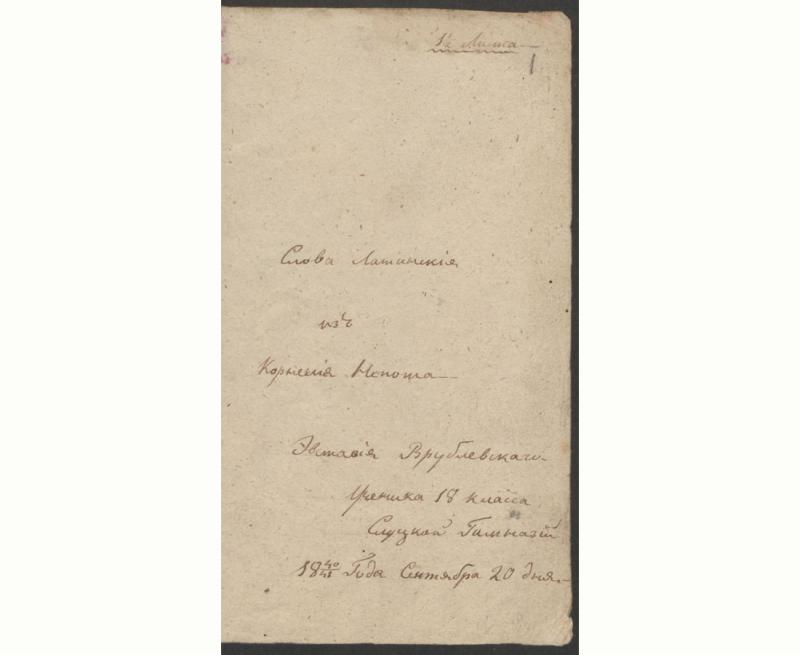 1½ Листа
1
Слова Латинскія
изъ
Корнелія Непота
Эвстафія Врублевскаго
Ученика класса
Слуцкой Гимназіи
18 40/41 Года Сентября 20 дня